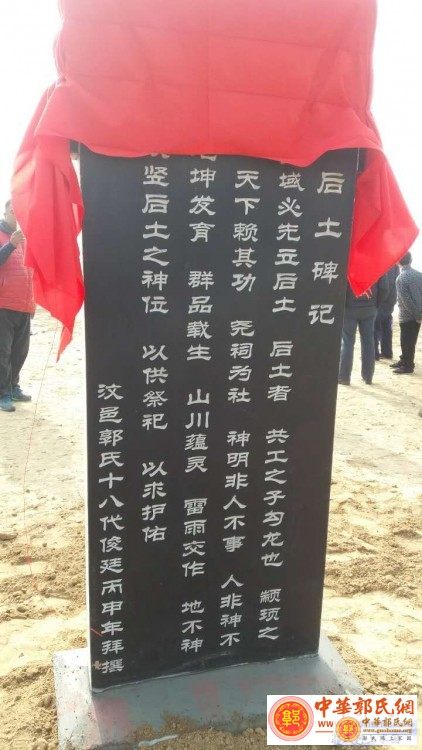 后土碑记
域必先立后土 后土者 共工之子勾龙也 颛顼之
天下赖其功 尧祠为社 神明非人不事 人非神不
坤发育 群品载生 山川蕴灵 雷雨交作 地不神
竖后土之神位 以供祭祀 以求护佑
汶邑郭氏十八代俊廷丙申年拜撰
中華郭氏網
中華郭氏網
www.guohome.org